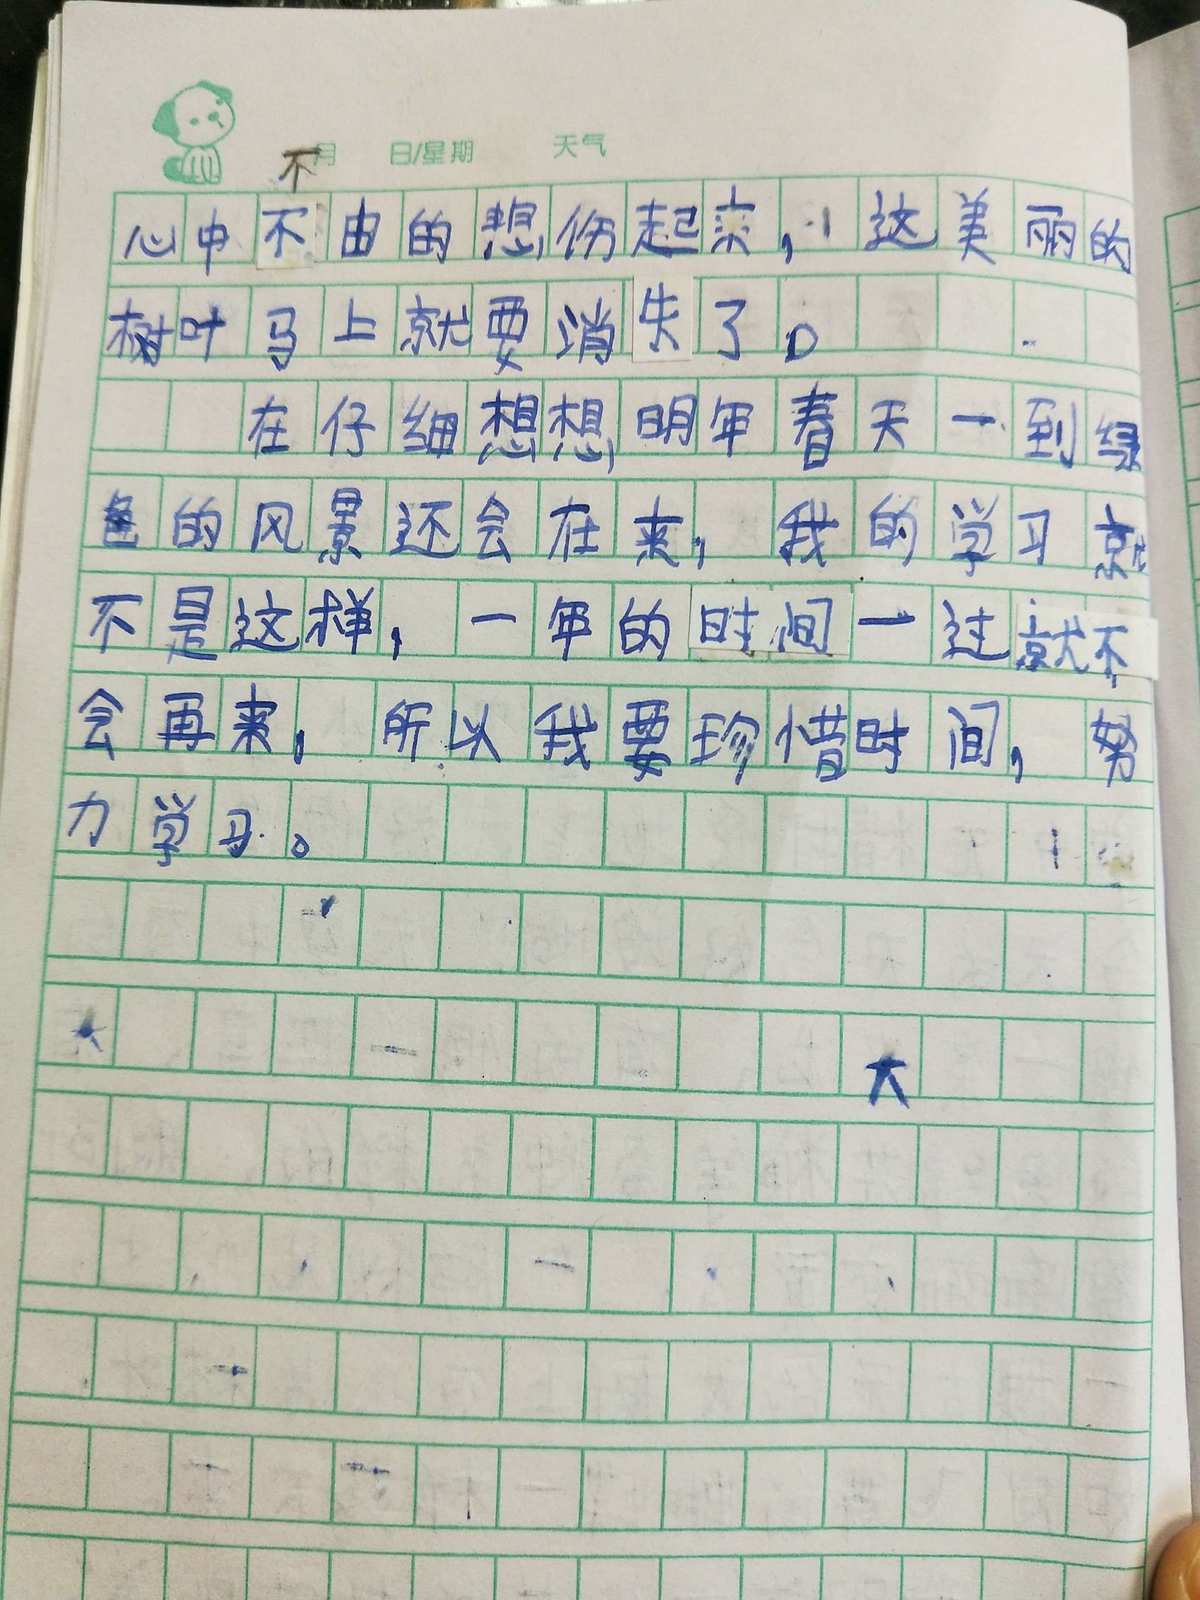 月 日/星期 天气
不
心中不由的想伤起来，这美丽的
树叶马上就要消失了。
在仔细想想明年春天一到绿
色的风景还会在来，我的学习就
不是这样，一年的时间一过就不
会再来，所以我要珍惜时间，努
力学习。
大